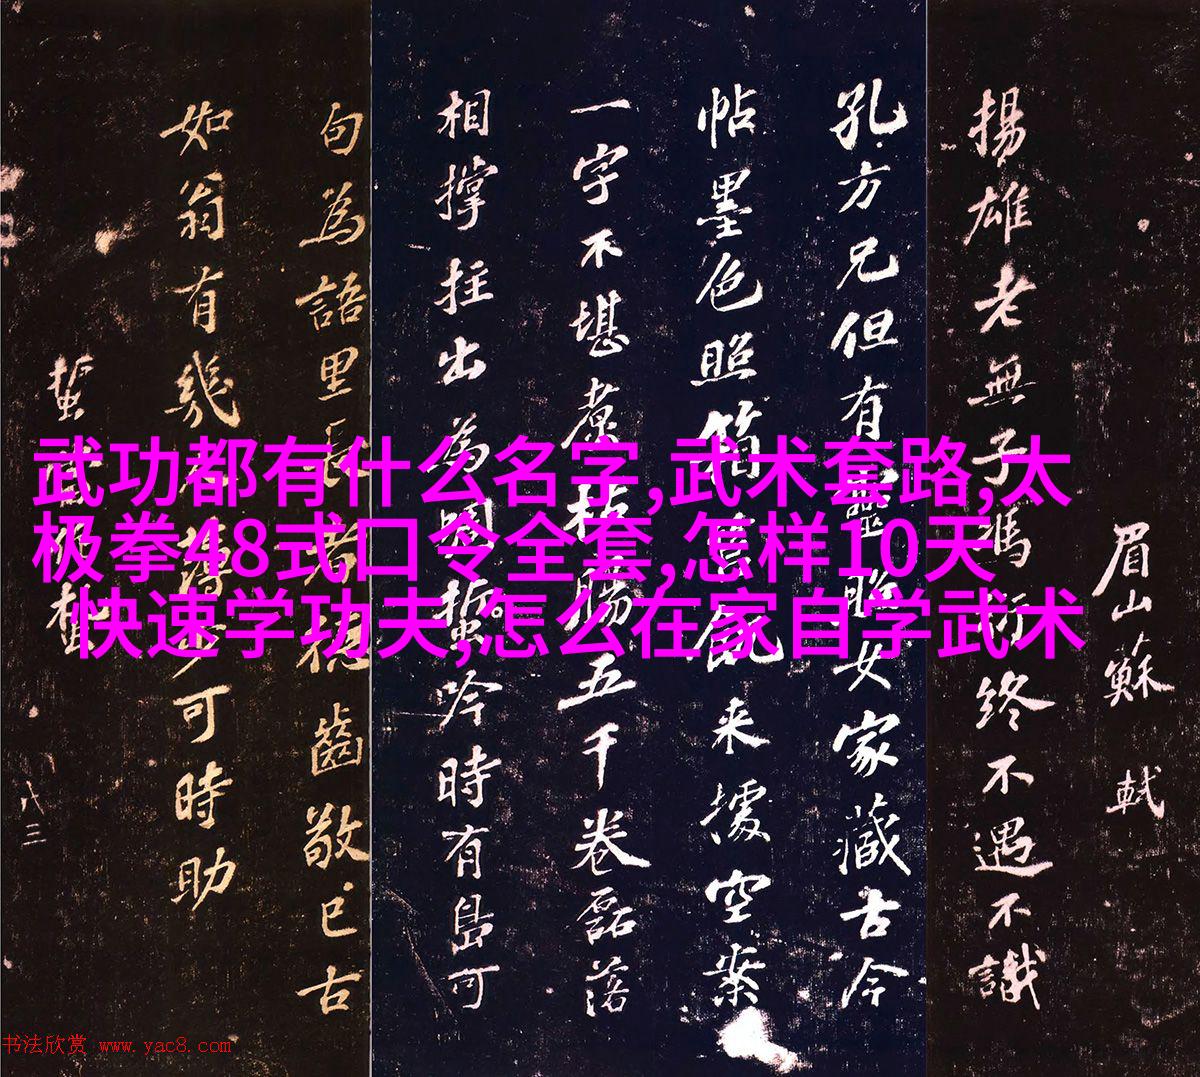 武功都有什么名字,武术套路,太
极拳48式口令全套,怎样10天
快速学功夫,怎么在家自学武术
眉山蘇軾
揚雄老無子馮終不遇不識
孔方兄但有靈照女家藏古今
帖墨色照箱來據空案
一字不堪煮枯腸五千卷磊落
相撑拄出為吟時有島可
句為語里長者德齒敬已古
如翁有幾少可時助
八三
书法欣赏 www.yac8.com